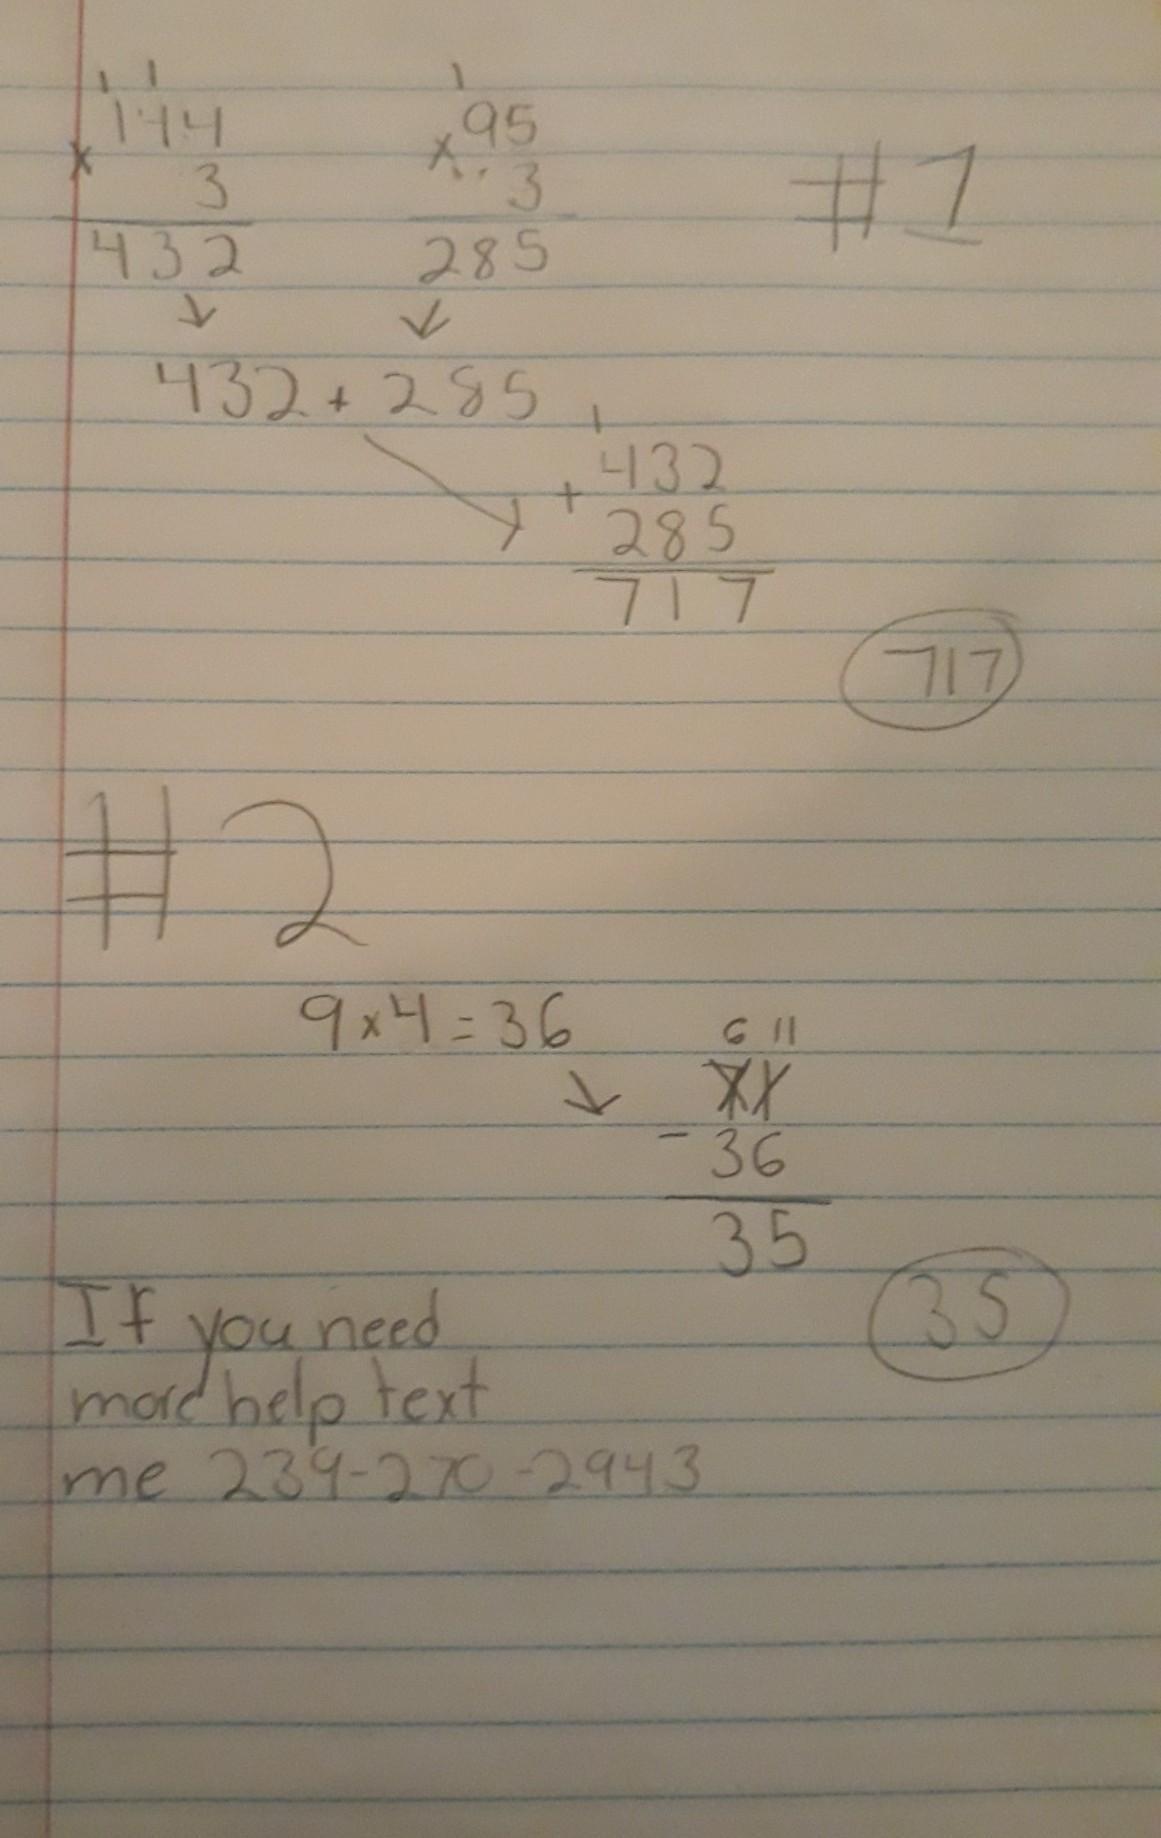 1 1
144
x 3
432
1
95
x 3
285
#1
432 + 285
1
432
+ 285
717
717
#2
9x4=36
6 11
71
- 36
35
35
If you need
more help text
me 239-270-2943